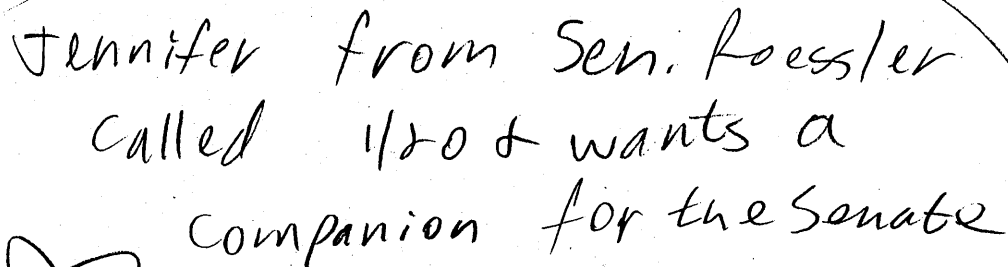 Jennifer from Sen. Roessler
called 1/20 & wants a
companion for the Senate